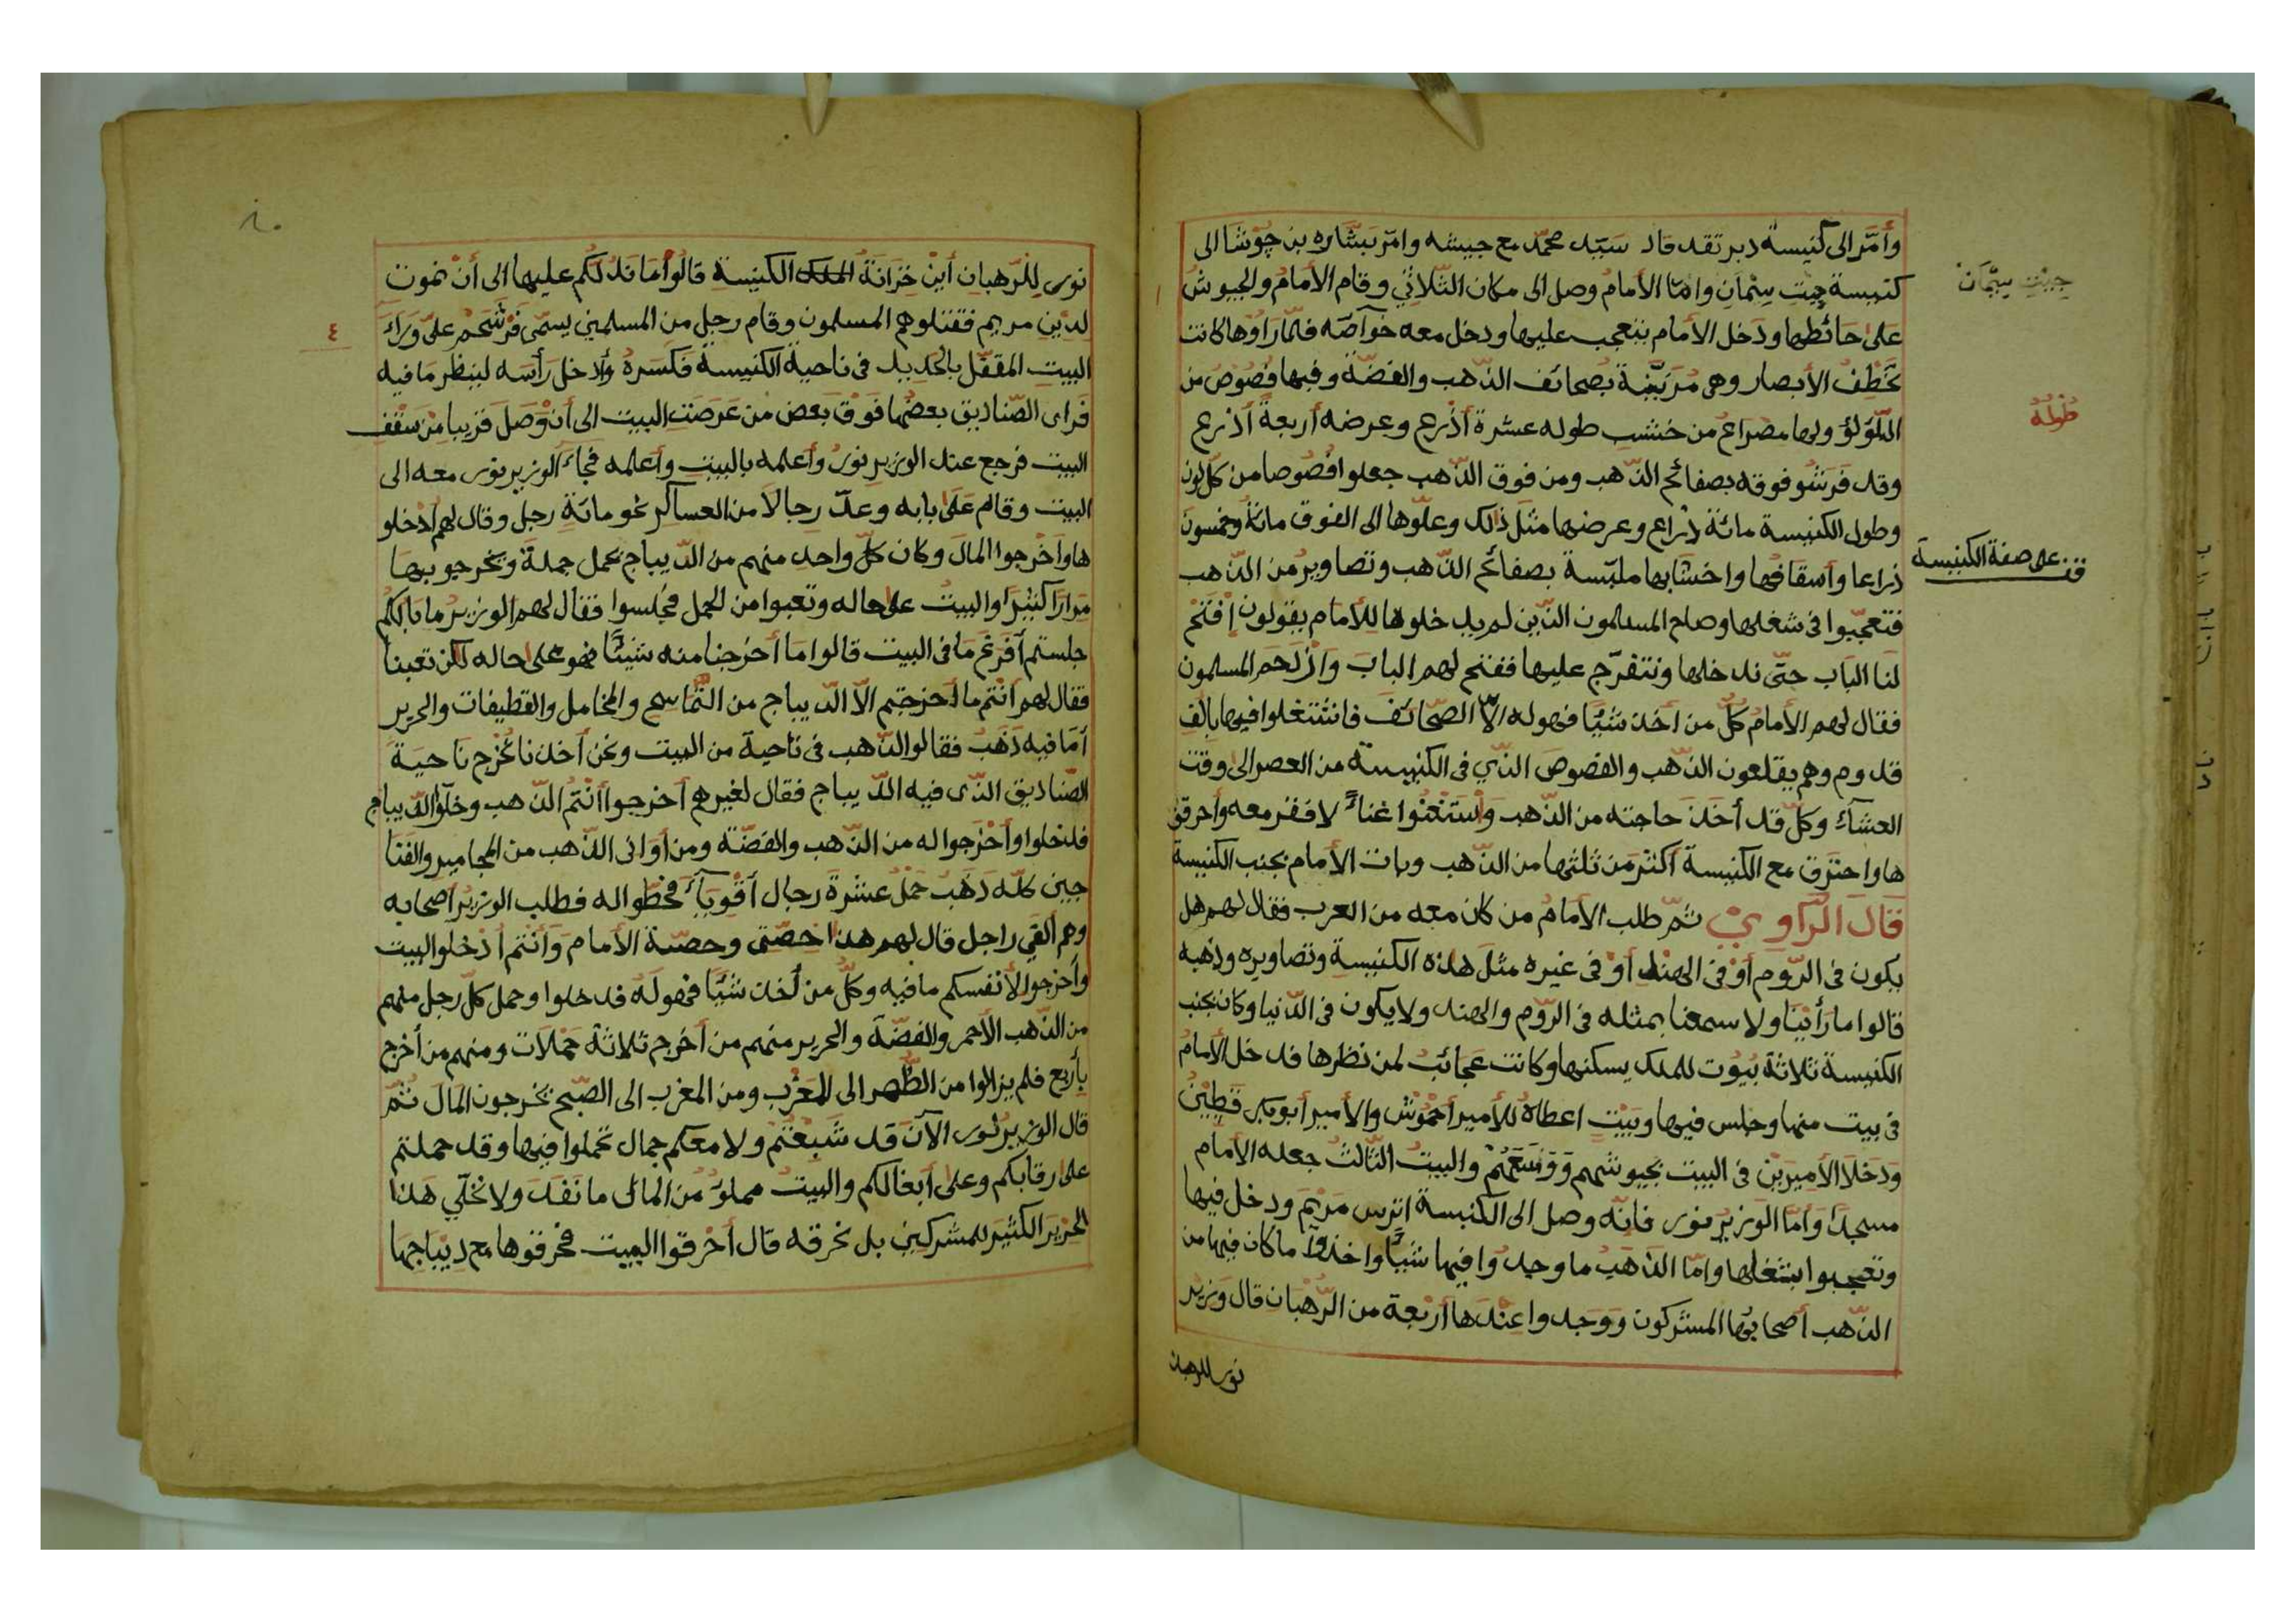 وأمّر الى كنيسة دبر تقد قاد سيّد محمّد مع جيشه وامّر بشاره بن چوشا الى
كنيسة چيت سِمَّان وامّا الأمام وصل الى مكان الثلاثي وقام الأمام والجيوش
جيْتِ سِمَّانْ
على حائطها ودخل الأمام يتعجب عليها ودخل معه خوآصّه فلمّا راوْها كانت
تخطف الأبصار وهى مُزَيَّنة بصحائف الذّهب والفضّة وفيها فُصُوْص من
اللّؤلؤ ولها مصراع من خشب طوله عشرة أذْرع وعرضه أربعة أذرع
طُوْلُهُ
وقد فَرَشُو فوقه بصفائح الذّهب ومن فوق الذّهب جعلوا فُصُوصا من كلّ لون
وطول الكنيسة مائة ذراع وعرضها مثل ذٰلك وعلّوها الى الفوق مائة وخمسون
ذراعا وأسقافها واخشابها ملبّسة بصفائح الذّهب وتصاوير من الذّهب
قف على صفة الكنيسة
فتعجّبوا فى شغلها وصاح المسلمون الذّين لم يدخلوها للأمام يقولون إفتح
لنا الباب حتّى ندخلها ونتفرّج عليها ففتح لهم الباب وازدحم المسلمون
فقال لهم الأمام كلّ من اخذ شيئًا فهوله الاّ الصّحائف فاشتغلوا فيها بالف
قدوم وهم يقلعون الذّهب والفصوص الذّي فى الكنيسة من العصر الى وقت
العشآء وكلّ قد أخذ حاجته من الذّهب وأستغنوا غناءً لا فقر معه وأحرقو
ها واحترق مع الكنيسة أكثر من ثلثها من الذّهب وبات الأمام بجنب الكنيسة
قَالَ الرّاوي ثمّ طلب الأمام من كان معه من العرب فقال لهم هل
يكون فى الرّوم أوْ فى الهند أوْ فى غيره مثل هذه الكنيسة وتصاويره وذهبه
قالوا ما رأيْنا ولا سمعنا بمثله فى الرّوم والهند ولا يكون فى الدّنيا وكان بجنب
الكنيسة ثلاثة بُيُوت للملك يسكنها وكانت عجائب لمن نظرها فدخل الأمام
فى بيت منها وجلس فيها وبَيْت اعطاه للأمير أحْمُوْش والأمير أبوبكر قَطِيْن
ودخلا الأميريْن فى البيت بجيوشهم ووَسَعَهُمْ والبيت الثّالث جعله الأمام
مسجدًا وأمّا الوزير نور فانّه وصل الى الكنيسة اترس مَرْيَمَ ودخل فيها
وتعجبوا بشغلها وامّا الذّهب ما وجدُوا فيها شيئًا واخذوا ما كان فيها من
الذّهب أصحابُها المشركون ووجدوا عنْدها أربْعة من الرّهبان قال وزير
نور للرهبان
نور للرّهبان أيْنَ خزانة الكنيسة قالوا ما ندلّكم عليها الى أنْ نموت
لديْن مريم فقتلوهم المسلمون وقام رجل من المسلمين يسمّى فَرْشَحَمْ علىّ وَراءَ
٤
البيت المقفّل بالحديد فى ناحية الكنيسة فكسره وأدخل رأسه لينظر ما فيه
فراى الصّناديق بعضُها فوْق بعض من عَرَصَتِ البيت الى أنْ وصل قريبا من سقف
البيت فرجع عند الوزير نور وأعلمه بالبيت وأعلمه فجاءَ الوزير نور معه الى
البيت وقام على بابه وعدّ رجالاً من العساكر نحو مائةِ رجل وقال لهم أدخلو
ها وأخْرجوا المال وكان كلّ واحد منهم من الدّيباج يحمل جملة ويخرجو بها
مِرارًا كثيْرا والبيت على حاله وتعبوا من الحمل فجلسوا فقال لهم الوزير ما بالكم
جلستم أفرغ ما فى البيت قالوا ما أخرجنا منه شيئًا فهو على حاله لكن تعبنا
فقال لهم انْتم ما أخرجتم الاّ الدّيباج من التّماسيح والمخامل والقطيفات والحرير
أمَا فيه ذَهَبٌ فقالو الذّهب فى ناحية من البيت ونحن أخذنا نُخْرج ناحيةَ
الصّناديق الذّى فيه الدّيباج فقال لغيرهم أخرجوا أنْتُم الذّهب وخلّوا الدّيباج
فدخلوا وأخْرجوا له من الذّهب والفضّة ومن أوانى الذّهب من المجامير والفنا
جين كلّه ذهب حَمْلَ عشرة رجال أقْوِيآءَ فحطّوا له فطلب الوزير أصحابه
وهم ألفَي راجل قال لهم هذا حصّتى وحصّة الأمام وَأنْتم أدْخلو البيت
وأخرجوا لأنفسكم ما فيه وكلّ من أخذ شيئًا فهولَهُ فدخلوا وحمل كلّ رجل منهم
من الذّهب الأحمر والفضّة والحرير منهم من أخرج ثلاثة حَمْلات ومنهم من أخرج
بأربع فلم يزالوا من الظّهر الى المغْرب ومن المغرب الى الصّبح يخرجون المال ثمّ
قال الوزير نور الآن قد شَبِعْتُمْ ولا معكم جمال تحملوا فيها وقد حملتم
على رقابكم وعلى أبغالكم والبيت مملوّ من المال ما نَفَدَ ولا نُخلّي هذا
الحريْر الكثير للمشركين بل نحرقه قال أحْرقوا البيت فحرقوها مع ديْباجها